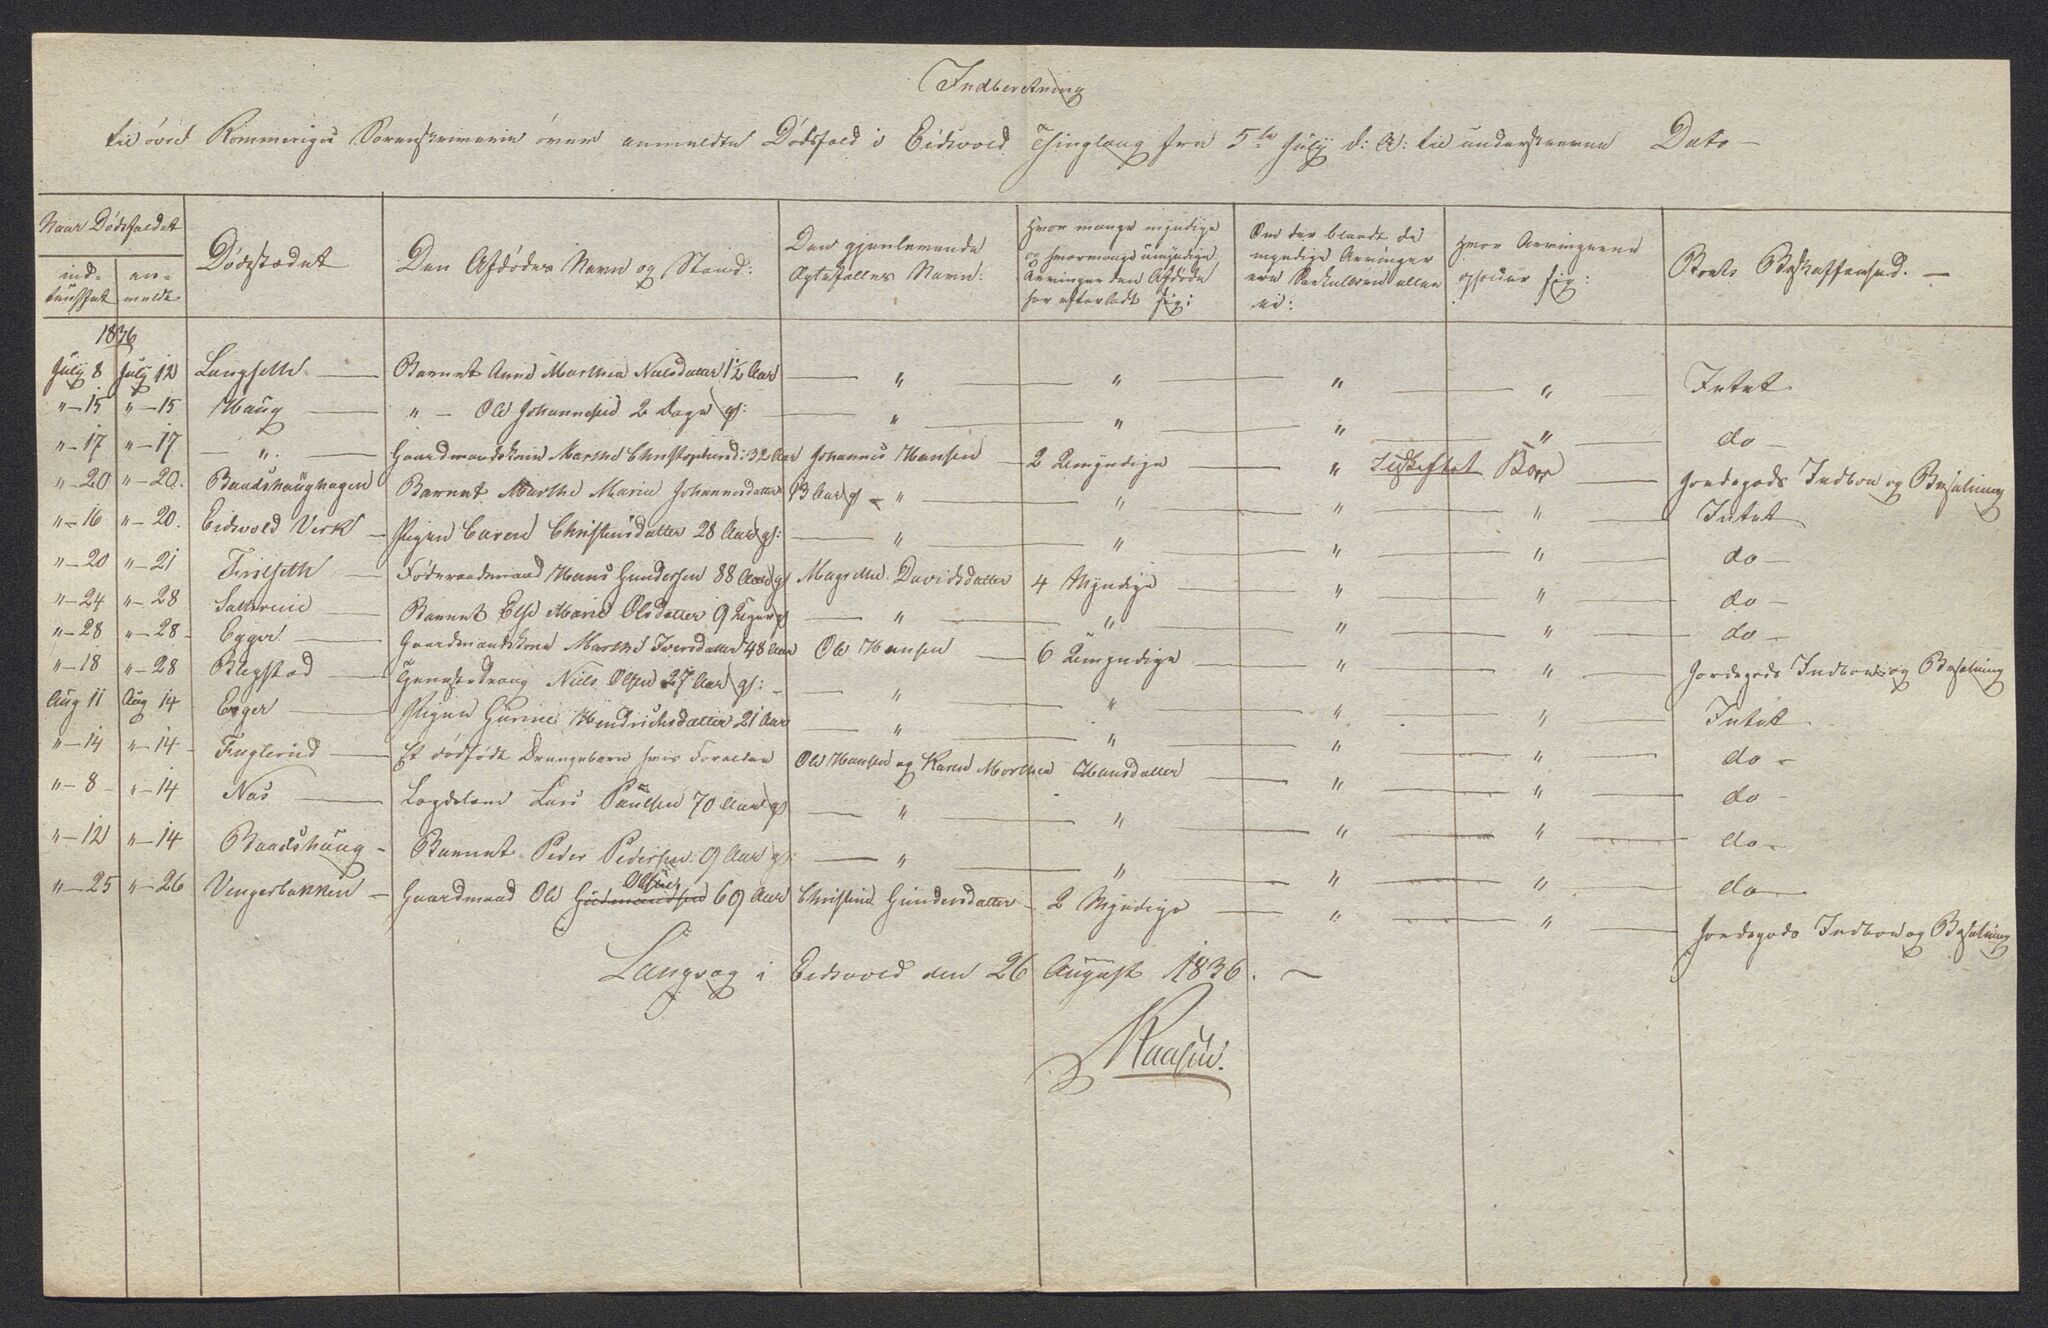 Indberetning
til øvre Rommeriges Sorenskriverie over anmeldte Dødsfald i Eidsvold Thinglaug fra 5te July d: A: til underskrevne Dato —
Naar Dødsfaldet
ind- truffet
an- meldt
Dødsstædet
Den Afdødes Navn og Stand:
Den gjenlevende Ægtefælles Navn:
Hvor mange myndige og hvormange umyndige Arvinger den Afdøde har efterladt sig:
Om der blandt de myndige Arvinger ere eller ei:
Hvor Arvingerne opholder sig:
Boets Beskaffenhed. —
1836
July 8 July 12 Langseth — Barnet Anne Marthea Nielsdatter 1½ Aar — " — " — " — " — Intet
" — 15 " — 15 Haug — " — Ole Johannesen 2 Dage gl: — " — " — " — " — do —
" — 17 " — 17 — " — Gaardmandskone Marthe Christophersd: 32 Aar Johannes Hansen — 2 Umyndige — " Jordegods Indboe og Besætning
" — 20 " — 20. Baadshaughagen Barnet Marthe Marie Johannesdatter 13 Aar gl — " — " — " — " — Intet
" — 16 " — 20. Eidsvold Verk — Pigen Caren Christensdatter 28 Aar gl: — " — " — " — " — do —
" — 20 " — 21 Føderaadsmand Hans Gundersen 88 Aar gl Davidsdatter 4 Myndige — " — " — do —
" — 24 " — 28 Barnet Else Marie Olsdatter 9 Uger gl — " — " — " — " — do —
" — 28 " — 28 — Egger — Gaardmandskone Marthe Iversdatter 48 Aar Ole Hansen — 6 Umyndige — " — " — Jordegods Indboe og Besætning
" — 18 " — 28 Blegstad — Tjenestedreng Niels Olsen 27 Aar gl: — " — " — " — " — Intet
Aug 11 Aug 14 Egger — Pigen Gurine Hendrichsdatter 21 Aar — " — " — " — " — do —
" — 14 " — 14 — Fuglerud — Et dødfødt Drengebarn hvis Forældre Ole Hansen og Karen Marthea Hansdatter — " — " — do —
" — 8 — " — 14 Næs — Lægdslem Lars Paulsen 70 Aar gl — " — " — " — " — do —
" — 12 " — 14 Baadshaug — Barnet Peder Pedersen 9 Aar gl: — " — " — " — " — do —
" — 25 " — 26 Vengerbakken — Gaardmand Ole Gudmundsen Olsen 69 Aar Christine Gundersdatter — 2 Myndige — " — " — Jordegods Indboe og Besætning
Langvag i Eidsvold den 26 August 1836. —